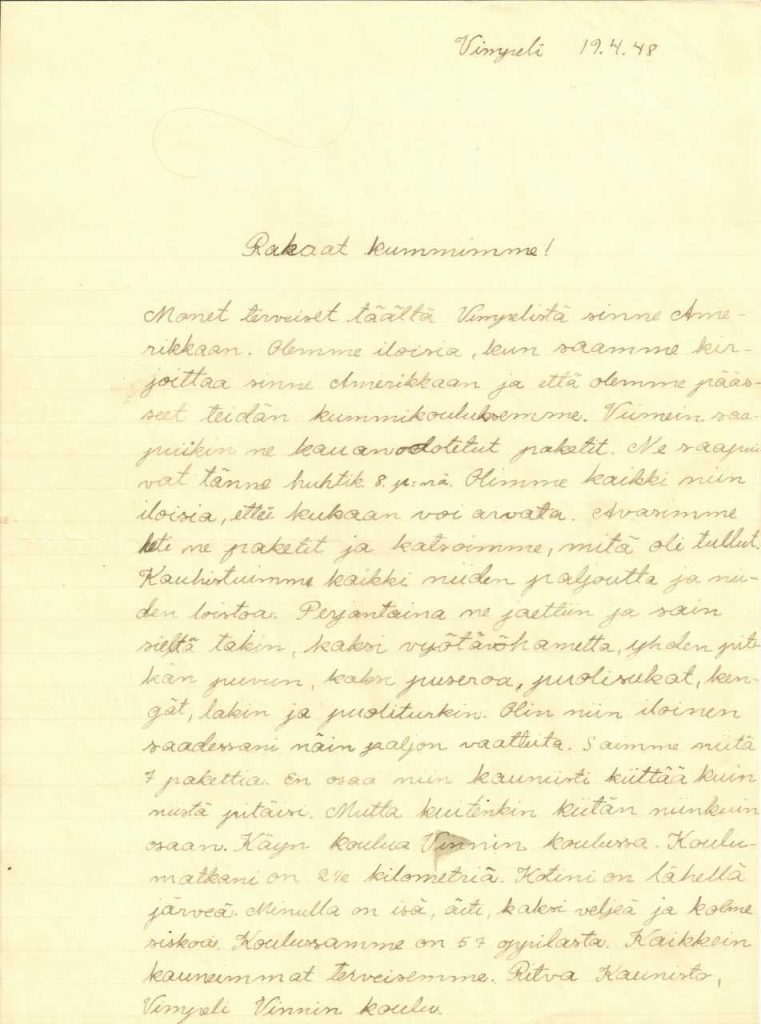 Vimpeli 19.4.48
Rakaat kummimme!
Monet terveiset täältä Vimpelistä sinne Ame-
rikkaan. Olemme iloisia, kun saamme kir-
joittaa sinne Amerikkaan ja että olemme pääs-
seet teidän kummikouluksemme. Viimein saa-
puikin ne kauanodotetut paketit. Ne saapui
vat tänne huhtik. 8. p:nä. Olimme kaikki niin
iloisia, ettei kukaan voi arvata. Avasimme
heti ne paketit ja katsoimme, mitä oli tullut.
Kauhistuimme kaikki niiden paljoutta ja nii-
den loistoa. Perjantaina ne jaettiin ja sain
sieltä takin, kaksi vyötävöhametta, yhden pit-
kän puvun, kaksi puseroa, puolisukat, ken-
gät, lakin ja puoliturkin. Olin niin iloinen
saadessani näin paljon vaatteita. Saimme niitä
7 pakettia. En osaa niin kauniisti kiittää kuin
nustä pitäisi. Mutta kuitenkin kiitän niinkuin
osaan. Käyn koulua Vinnin koulussa. Koulu-
matkani on 2½ kilometriä. Kotini on lähellä
järveä. Minulla on isä, äiti, kaksi veljeä ja kolme
siskoa. Koulussamme on 57 oppilasta. Kaikkein
kauneimmat terveisemme. Ritva Kaunisto,
Vimpeli Vinnin koulu.